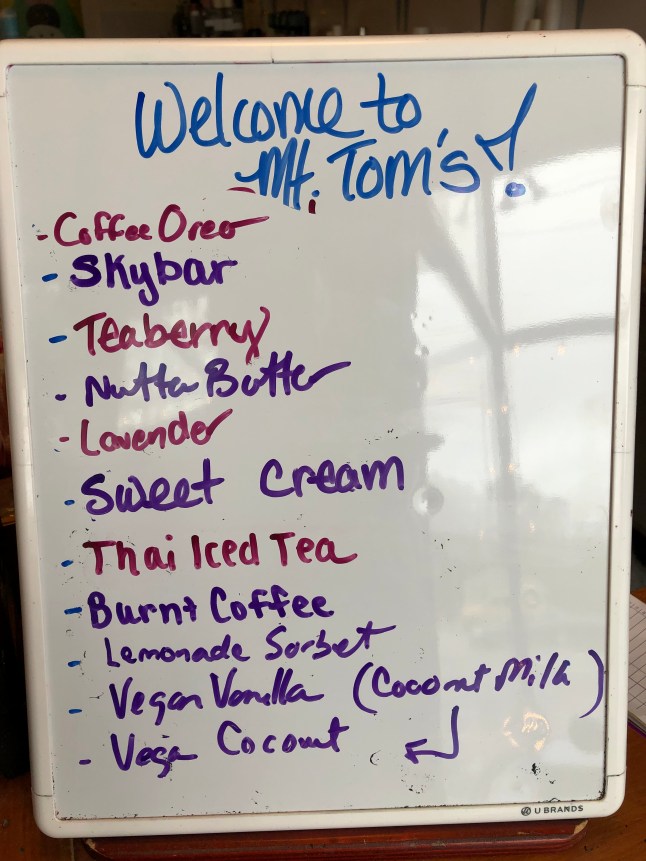 Welcome to
Mt. Tom's!
- Coffee Oreo
- Skybar
- Teaberry
- Nutta Butter
- Lavender
- Sweet Cream
- Thai Iced Tea
- Burnt Coffee
- Lemonade Sorbet
- Vegan Vanilla (Coconut Milk)
- Vega Coconut
U BRANDS